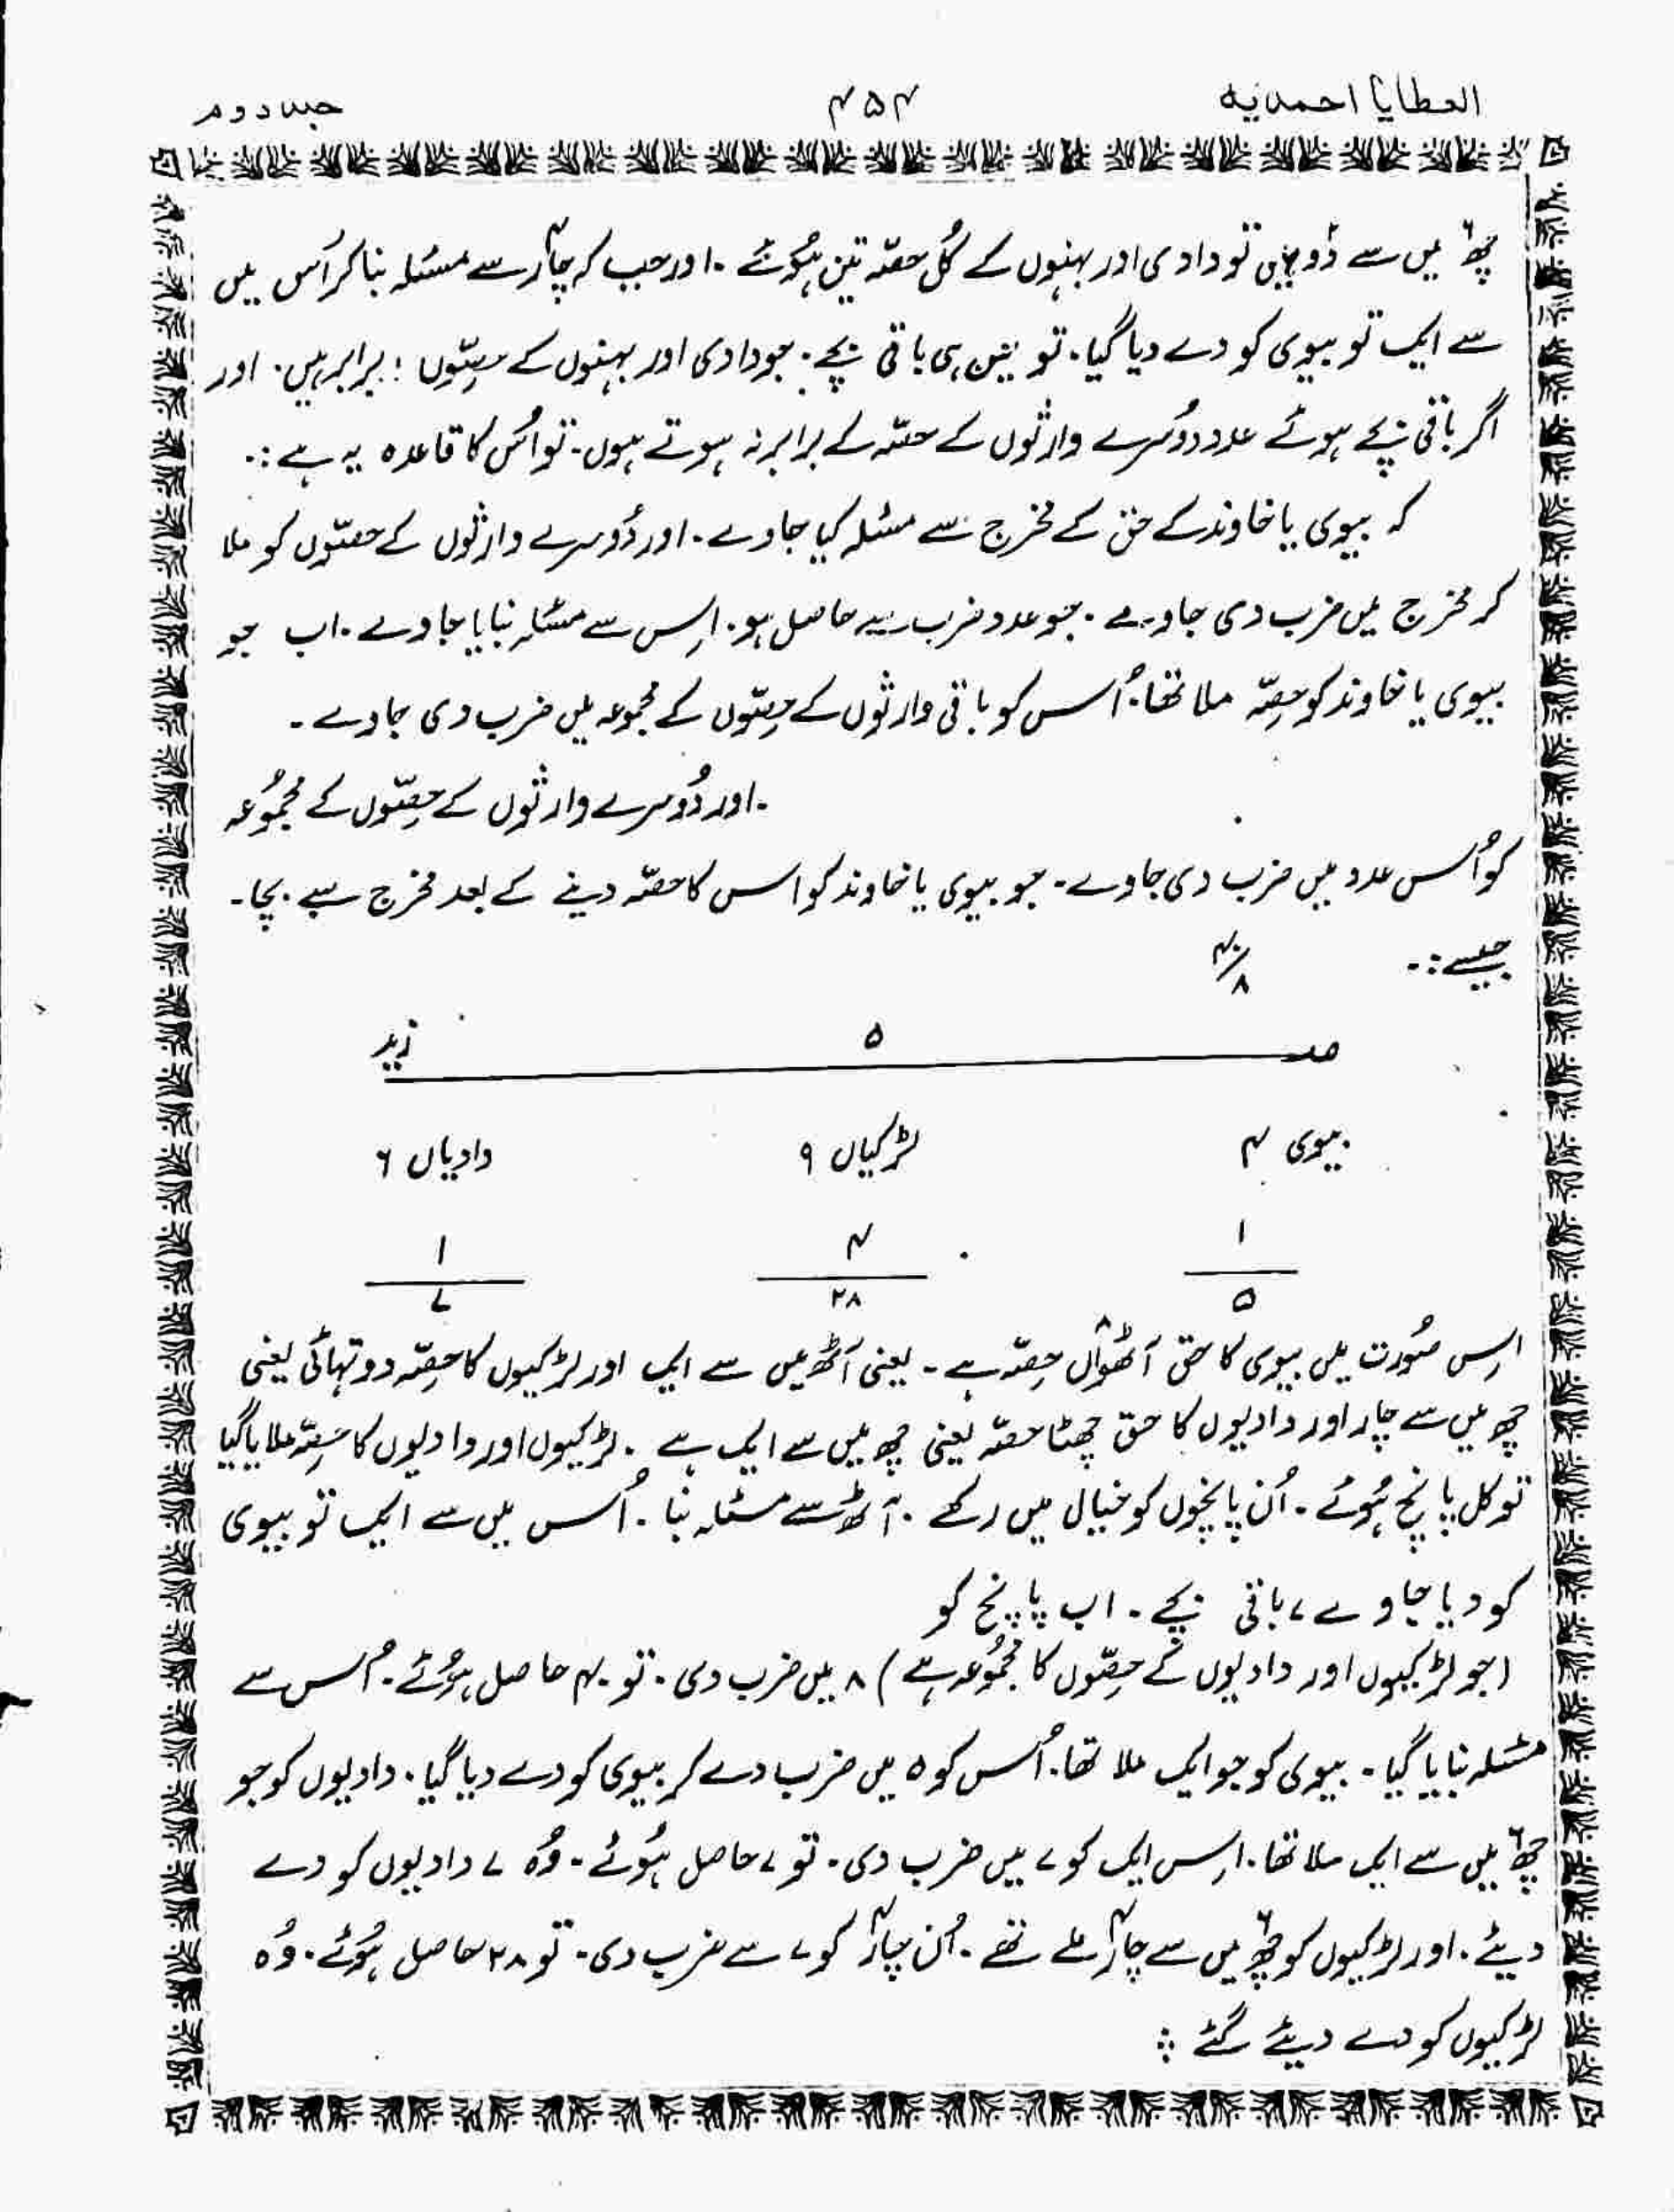 العطايا احمديه ۴۵۴ جلد دوم
چھ۶ میں سے دو ہیں تو دادی اور بہنوں کے کُل حصّہ تین ہُوئے ۔ اور جب کہ چار۴ سے مسئلہ بنا کر اُس میں
سے ایک تو بیوی کو دے دیا گیا۔ تو تین ہی باقی بچے۔ جو دادی اور بہنوں کے حِصّوں برابر ہیں۔ اور
اگر باقی بچے ہوئے عدد دُوسرے وارثوں کے حصّہ کے برابر نہ ہوتے ہوں۔ تو اُس کا قاعدہ یہ ہے :۔
کہ بیوی یا خاوند کے حق کے مخرج سے مسئلہ کیا جاوے۔ اور دُوسرے وارثوں کے حصّوں کو ملا
کر مخرج میں ضرب دی جاوے ۔ جو عدد ضرب سے حاصل ہو۔ اِس سے مسئلہ بنایا جاوے ۔ اب جو
بیوی یا خاوند کو حِصّہ ملا تھا۔ اُس کو باقی وارثوں کے حِصّوں کے مجموعہ میں ضرب دی جاوے ۔
۔ اور دُوسرے وارثوں کے حِصّوں کے مجمُوعہ
کو اُس عدد میں ضرب دی جاوے۔ جو بیوی یا خاوند کو اس کا حصّہ دینے کے بعد مخرج سے بچا۔
جیسے :۔ ۴۰/۸
مـ ۵ زید
بیوی ۴ لڑکیاں ۹ دادیاں ۶
۱ ۴ ۱
۵ ۲۸ ۷
اِس صُورت میں بیوی کا حق آٹھواں۸ حِصّہ ہے ۔ یعنی آٹھ میں سے ایک اور لڑکیوں کا حِصّہ دو تہائی یعنی
چھ میں سے چار اور دادیوں کا حق چھٹا حصّہ یعنی چھ میں سے ایک ہے ۔ لڑکیوں اور دادیوں کا حِصّہ ملایا گیا
تو کل پانچ ہُوئے ۔ اُن پانچوں کو خیال میں رکھے ۔ آٹھ سے مسئلہ بنا ۔ اُس میں سے ایک تو بیوی
کو دیا جاوے ۷ باقی بچے ۔ اب پانچ کو
(جو لڑکیوں اور دادیوں کے حِصّوں کا مجمُوعہ ہے) ۸ میں ضرب دی ۔ تو ۴۰ حاصل ہُوئے ۔ اُس سے
مسئلہ بنایا گیا ۔ بیوی کو جو ایک ملا تھا۔ اُس کو ۵ میں ضرب دے کر بیوی کو دے دیا گیا ۔ دادیوں کو جو
چھ۶ میں سے ایک ملا تھا۔ اِس ایک کو ۷ میں ضرب دی۔ تو ۷ حاصل ہُوئے ۔ وُہ ۷ دادیوں کو دے
دیئے ۔ اور لڑکیوں کو چھ۶ میں سے چار۴ ملے تھے ۔ اُن چار۴ کو ۷ سے ضرب دی۔ تو ۲۸ حاصل ہُوئے۔ وُہ
لڑکیوں کو دے دیئے گئے ⁘